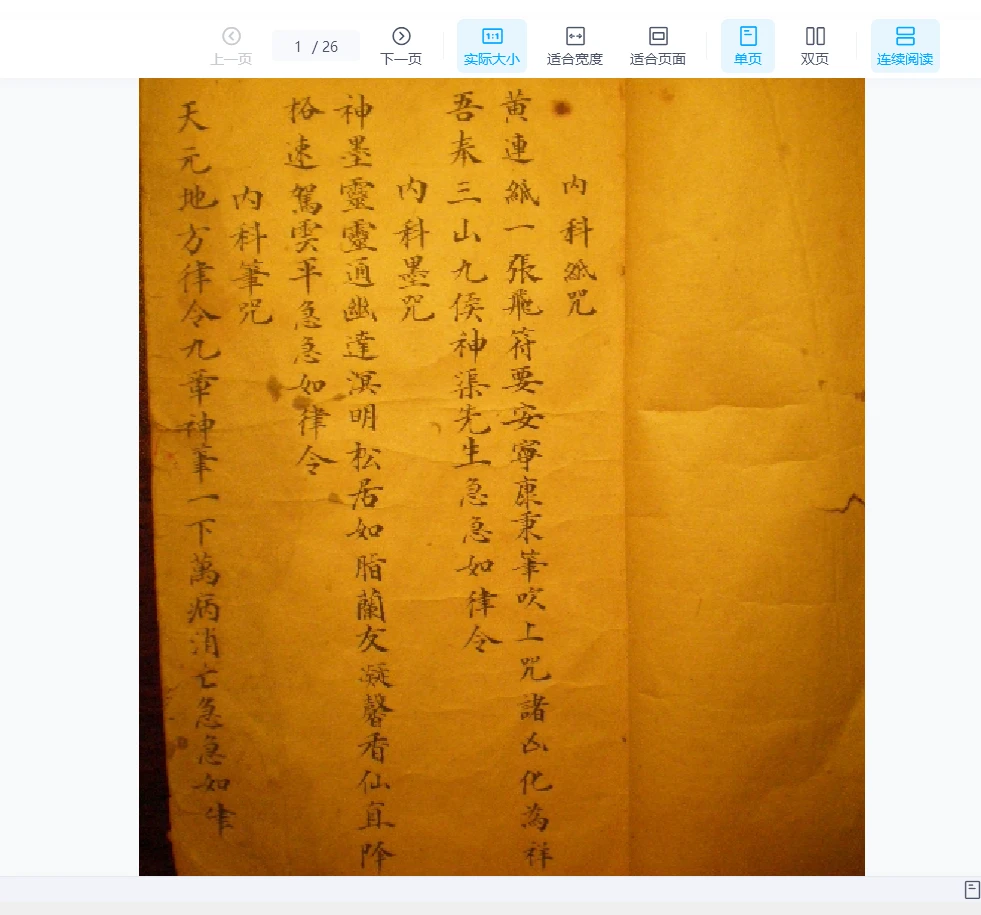 上一页
1 / 26
下一页
1:1
实际大小
适合宽度
适合页面
单页
双页
连续阅读
内科紙咒
黄連紙一張飛符要安寧康秉筆吹上咒諸凶化為祥
吾奉三山九侯神渠先生急急如律令
内科墨咒
神墨靈靈通幽達溟明松居如脂蘭友凝馨香仙真降
速駕雲平急急如律令
内科筆咒
天元地方律令九章神筆一下萬病消亡急急如律